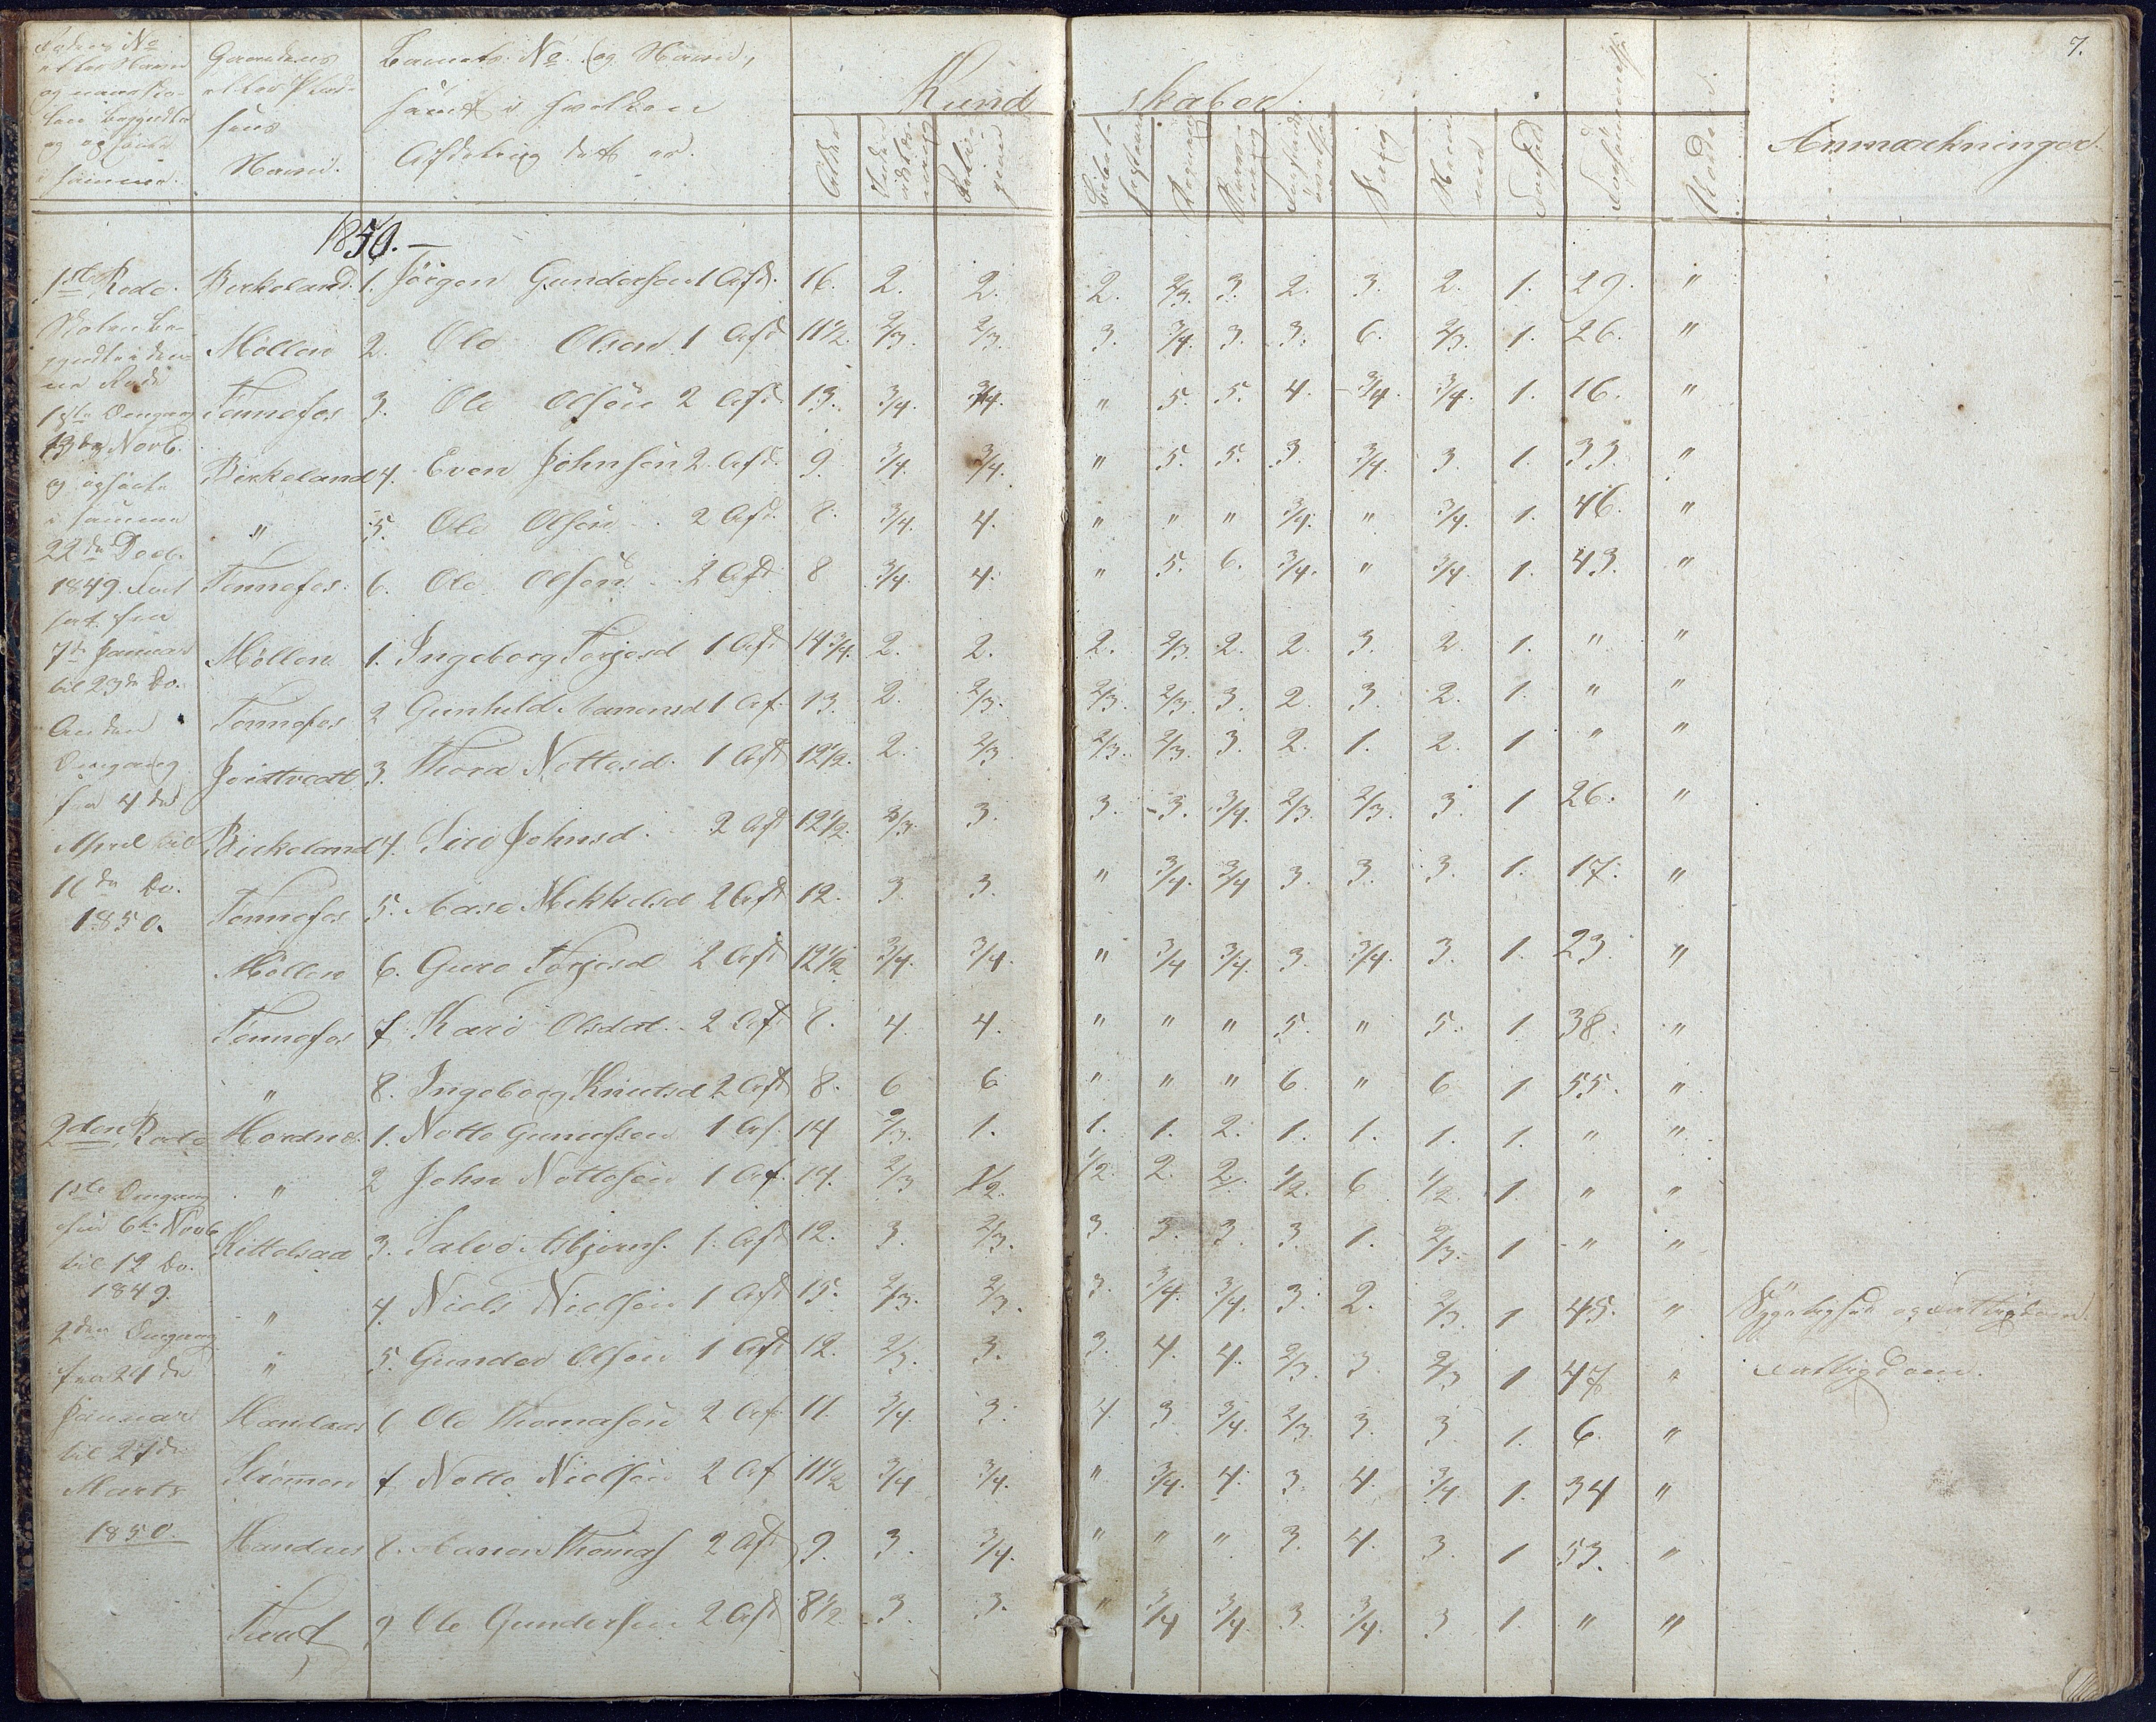 7.
Rodens No
eller Navn
og naar Sko-
len begyndte
og ophørte
i samme.
Gaardens
eller Plad-
sens
Navn.
Barnets No. og Navn,
samt i hvilken
Afdeling det er.
Kundskaber.
Alder
Religion
Regning
Sang
Forhold
Forsømmelse
Anmærkninger.
1850.
1ste Rode. Birkeland. 1. Jörgen Gundersen 1 Afd. 16. 2. 2. 2. 2/3. 3. 2. 3. 2. 1. 29. "
Skolen be-
gyndte i den-
ne Rode
1ste Omgang
13de Novb.
og ophørte
i samme
22de Decb.
1849. Fort
sat fra
7de Januar
til 23de do.
Anden
Omgang
fra 4de
April til
16de do.
1850.
Møllen 2. Ole Olsen 1 Afd 11 1/2. 2/3. 2/3. 3. 3/4. 3. 3. 6. 2/3. 1. 26. "
Tennefos 3. Ole Olsön 2 Afd. 13. 3/4. 3/4. " 5. 5. 4. 3/4. 3/4. 1. 16. "
Birkeland 4. Even Johnsen 2 Afd. 9. 3/4. 3/4. " 5. 5. 3. 3/4. 3. 1. 33. "
" 5. Ole Olsön 2 Afd. 8. 3/4. 4. " " " 3/4. " 3/4. 1. 46. "
Tennefos. 6. Ole Olsön 2 Afd 8 3/4. 4. " 5. 6. 3/4. " 3/4 1. 43. "
Møllen 1. Ingeborg Torjesd 1 Afd 14 3/4. 2. 2. 2. 2/3. 2. 2. 3. 2. 1. " "
Tennefos 2 Gunhild Aanensd 1 Af. 13. 2. 2/3. 2/3. 2/3. 3. 2. 3. 2. 1. " "
3. Thora Nottosd. 1 Afd 12 1/2. 2. 2/3 2/3. 2/3. 3. 2. 1. 2. 1 " "
Birkeland 4. Siri Johnsd. 2 Afd 12 1/2. 2/3 3. 3. 3. 3/4. 2/3. 2/3. 3. 1 26. "
Tennefos 5. Aase Mikkelsd 2 Afd 12. 3. 3. " 3/4. 3/4 3. 3. 3. 1. 17. "
Møllen 6. Guro Torjesd 2 Afd 12 1/2 3/4. 3/4. " 3/4 3/4. 3. 3/4. 3. 1. 23. "
Tennefos 7 Kari Olsdat. 2 Afd 8. 4. 4. " " " 5. " 5. 1. 38. "
" 8. Ingeborg Knutsd 2 Afd 8. 6 6 " " " 6. " 6 1 55. "
2den Rode Hordnes. 1. Notto Gunufsen 1 Af. 14 2/3. 1. 1. 1. 2. 1. 1. 1. 1. " "
1ste Omgang
fra 6te Novb
til 12 do.
1849.
2den Omgang
fra 24de
Januar
til 27de
Marts
1850.
" 2 John Nottosön 1 Af. 14. 2/3 1/2. 1/2. 2. 2. 1/2. 6 1/2. 1. " "
Kittelsaa 3. Salve Asbjørns. 1. Afd 12. 3. 2/3. 3. 3. 3. 3. 1. 2/3. 1 " "
" 4. Niels Nielsön 1 Afd 15. 2/3. 2/3. 3. 3/4. 3/4. 3. 2. 2/3. 1 45. " Sygelighed og Fattigdom.
" 5. Gunder Olsön 1 Afd 12. 2/3. 3. 3. 4. 4. 2/3. 3. 2/3 1 47. " Fattigdom.
6 Ole Thomasön 2 Af. 11. 3/4. 3. 4. 3. 3/4. 2/3. 3. 3. 1. 6. "
Strømmen 7 Notto Nielsön 2 Af 11 1/2 3/4 3/4. " 3/4. 4. 3. 4. 3/4. 1. 34 "
8. Aanen Thomas 2 Afd 9. 3. 3/4. " " " 3. 4. 3. 1 53. "
9 Ole Gundersen 2 Afd 8 1/2. 3. 3. " 3/4 3/4. 3 3/4. 3 1. " "